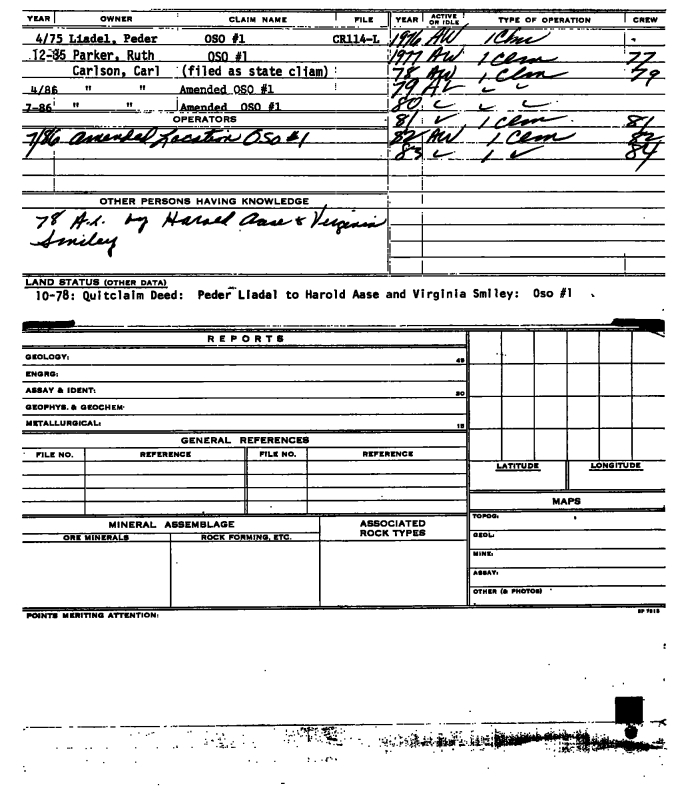 YEAR OWNER CLAIM NAME FILE YEAR ACTIVE OR IDLE TYPE OF OPERATION CREW
4/75 Liadel, Peder OSO #1 CR114-L 1976 AW 1 Clm
12-85 Parker, Ruth OSO #1 1977 AW 1 Clm 77
Carlson, Carl (filed as state cliam) 78 AW 1 Clm 79
4/86 " " Amended OSO #1 79 AL ✓ ✓
7-86 " " Amended OSO #1 80 ✓ ✓ ✓
OPERATORS 81 ✓ 1 Clm 81
7/86 Amended Location OSO #1 82 AW 1 Clm 82
83 ✓ 1 ✓ 84
OTHER PERSONS HAVING KNOWLEDGE
78 A.L. by Harold Aase & Virginia
Smiley
LAND STATUS (OTHER DATA)
10-78: Quitclaim Deed: Peder Liadal to Harold Aase and Virginia Smiley: Oso #1
REPORTS
GEOLOGY: 45
ENGRG:
ASSAY & IDENT: 20
GEOPHYS. & GEOCHEM:
METALLURGICAL: 15
GENERAL REFERENCES
FILE NO. REFERENCE FILE NO. REFERENCE
LATITUDE LONGITUDE
MAPS
MINERAL ASSEMBLAGE ASSOCIATED ROCK TYPES
ORE MINERALS ROCK FORMING, ETC.
TOPOG:
GEOL:
MINE:
ASSAY:
OTHER (& PHOTOS)
POINTS MERITING ATTENTION: SF 7515